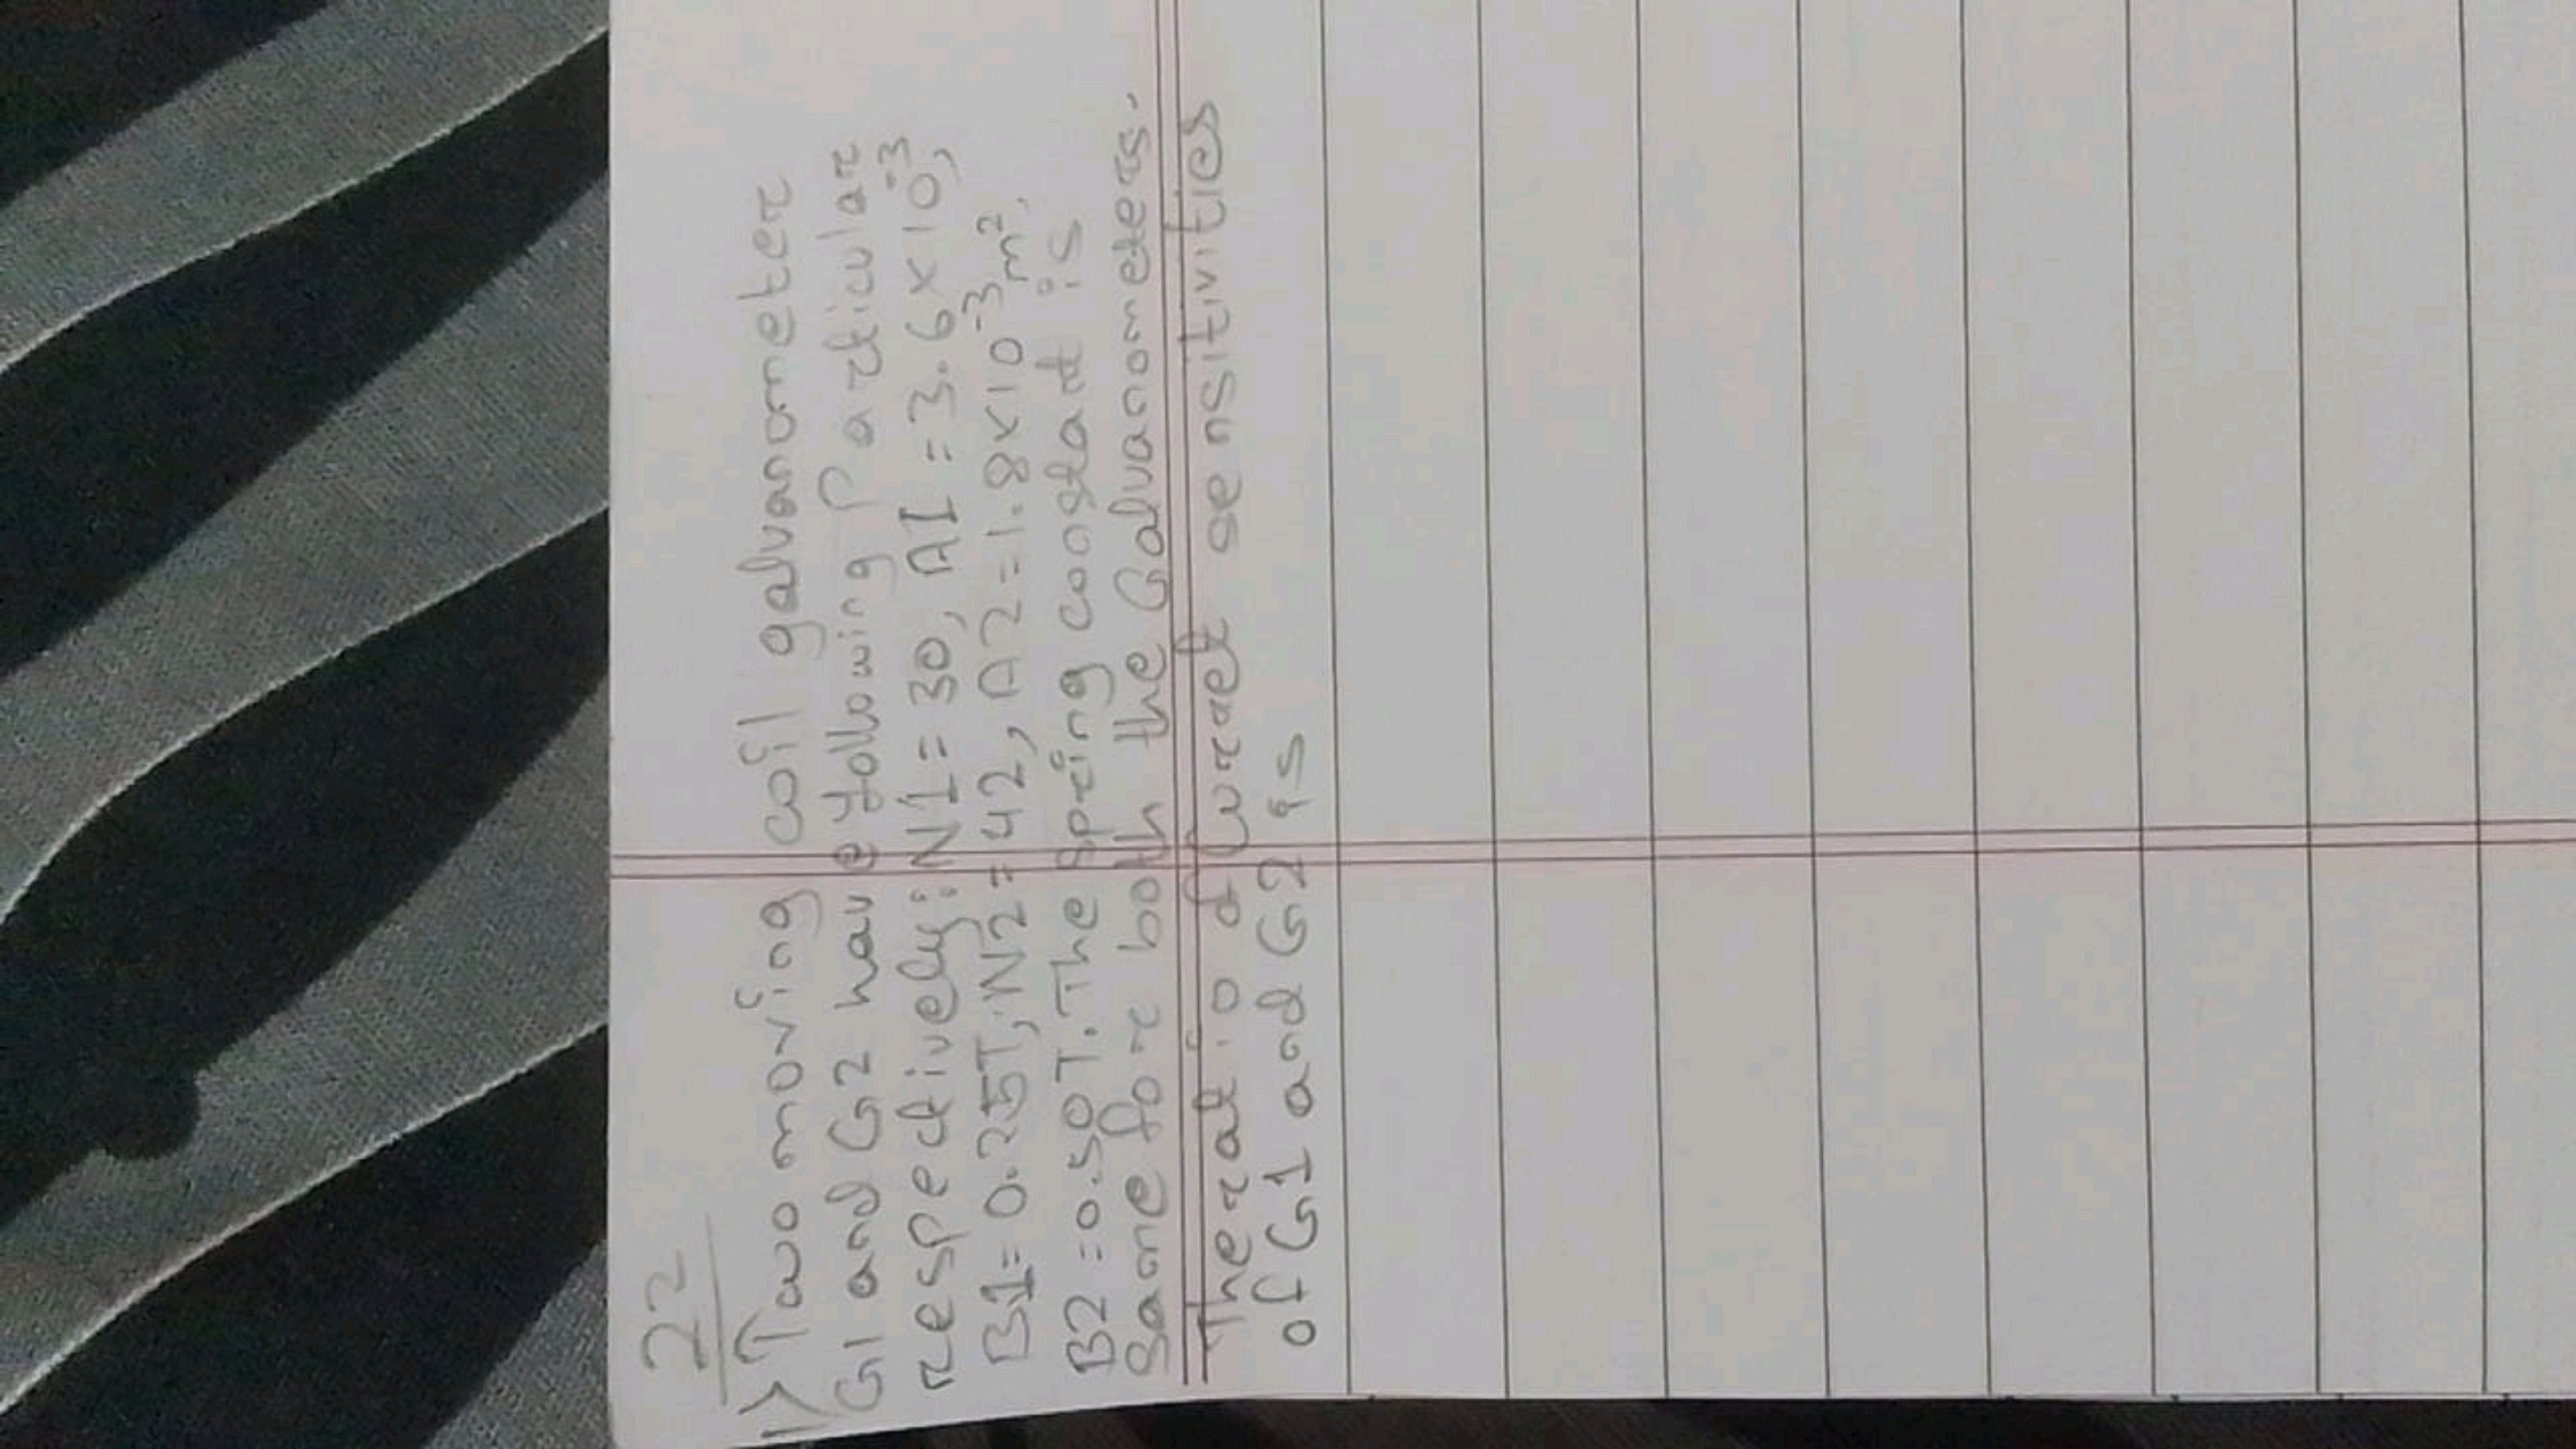 22
1) Two moving coil galvanometer
G1 and G2 have following Particular
respectively: N1 = 30, A1 = 3.6×10⁻³,
B1 = 0.25T, N2 = 42, A2 = 1.8×10⁻³m².
B2 = 0.50T. The spring constant is
Same for both the Galvanometers.
The ratio of current sensitivities
of G1 and G2 is